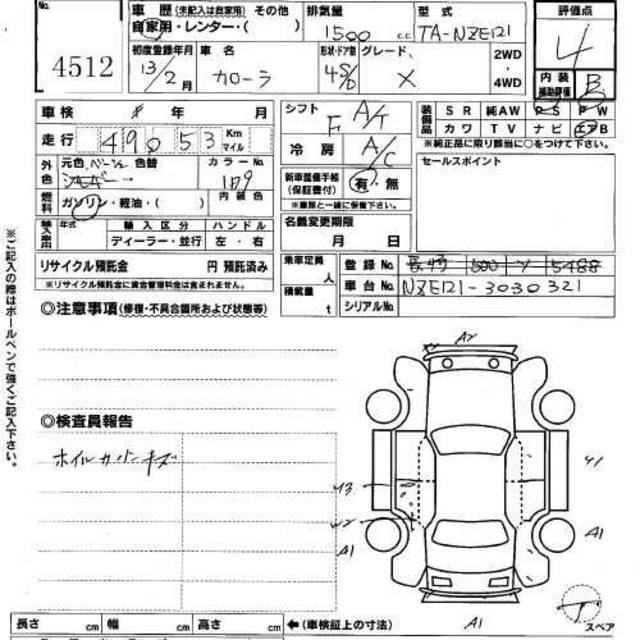 No.
4512
車歴 (未記入は自家用) その他
自家用・レンター・( )
排気量
1500 cc
型式
TA-NZE121
評価点
4
初度登録年月
13/2月
車名
カローラ
形状・ドア数
4S/D
グレード、
X
2WD
・
4WD
内装
補助評価
B
車検 年 月
走行 49053 Km
マイル
外色
元色 色替
シルバー
カラーNo.
1F9
内装色
燃料
ガソリン・軽油・( )
輸入車用
年式
輸入区分
ディーラー・並行
ハンドル
左・右
シフト
F A/T
冷房
A/C
新車整備手帳
(保証書付)
有・無
※車歴と一緒に保管下さい。
名義変更期限
月 日
装備品
SR 純AW PS PW
カワ TV ナビ エアB
※純正品に限り該当に○をつけて下さい。
セールスポイント
リサイクル預託金 円 預託済み
※リサイクル預託金に資金管理料金は含まれません。
乗車定員 人
積載量 t
登録No. 5488
車台No. NZE121-3030321
シリアルNo.
◎注意事項(修復・不具合箇所および状態等)
◎検査員報告
ホイルカバーキズ
※ご記入の際はボールペンで強くご記入下さい。
A2
Y3
W2
A1
Y1
A1
A1
スペア
長さ cm 幅 cm 高さ cm ←(車検証上の寸法)